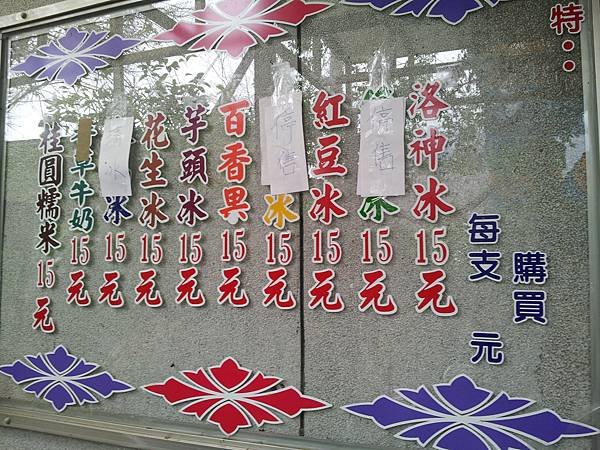 特：
購買
每支 元
洛神冰15元
停售
冰15元
紅豆冰15元
停售
冰15元
百香果15元
芋頭冰15元
花生冰15元
冰
冰15元
草牛奶15元
桂圓糯米15元